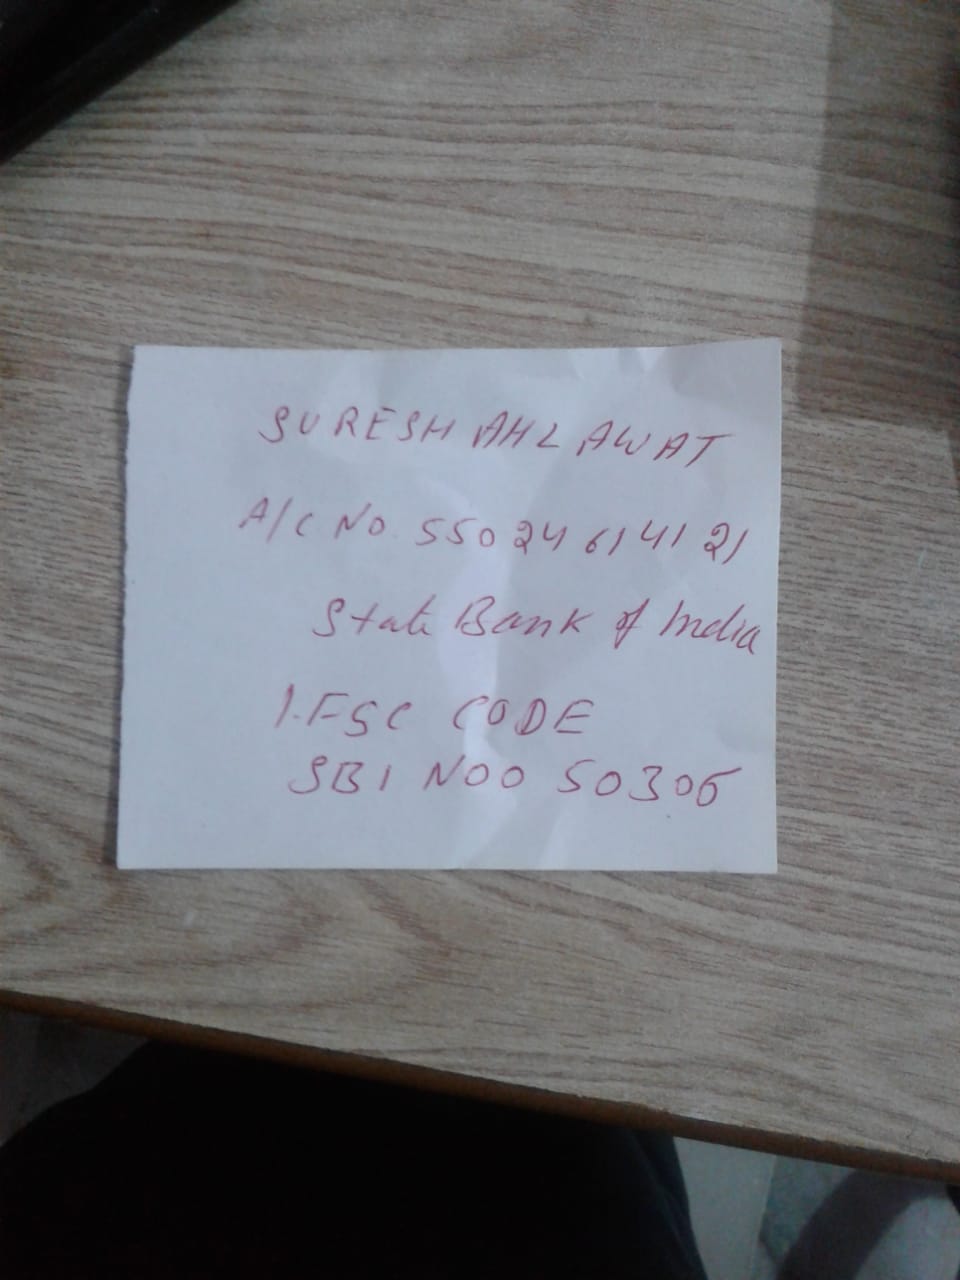 SURESH AHLAWAT
A/C NO. 55024614121
State Bank of India
I.FSC CODE
SBI NOO 50306